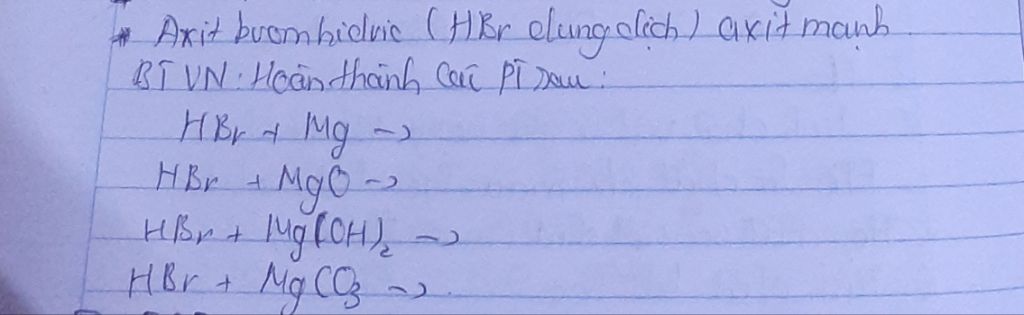 * Axit bromhidric (HBr dung dịch) axit mạnh.
BTVN: Hoàn thành các PT sau:
HBr + Mg ->
HBr + MgO ->
HBr + Mg(OH)₂ ->
HBr + MgCO₃ ->